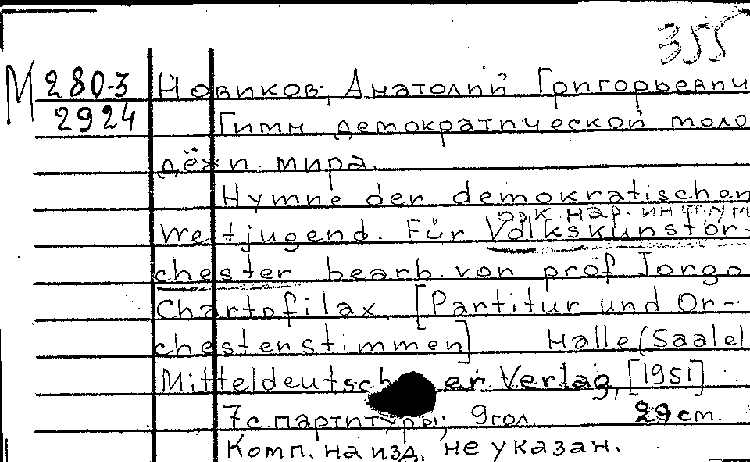 355
М 280-3
2924
Новиков, Анатолий Григорьеви
Гимн демократической моло
дёжи мира.
Hymne der demokratischen
Weltjugend. Für Volkskunstor-
chester bearb. von prof Jorgo
Chartofilax. [Partitur und Or-
chestenstimmen] Halle (Saale)
Mitteldeutsch er Verlag, [1951]
7с. партитуры; 9гол. 29 cm.
Комп. на изд. не указан.